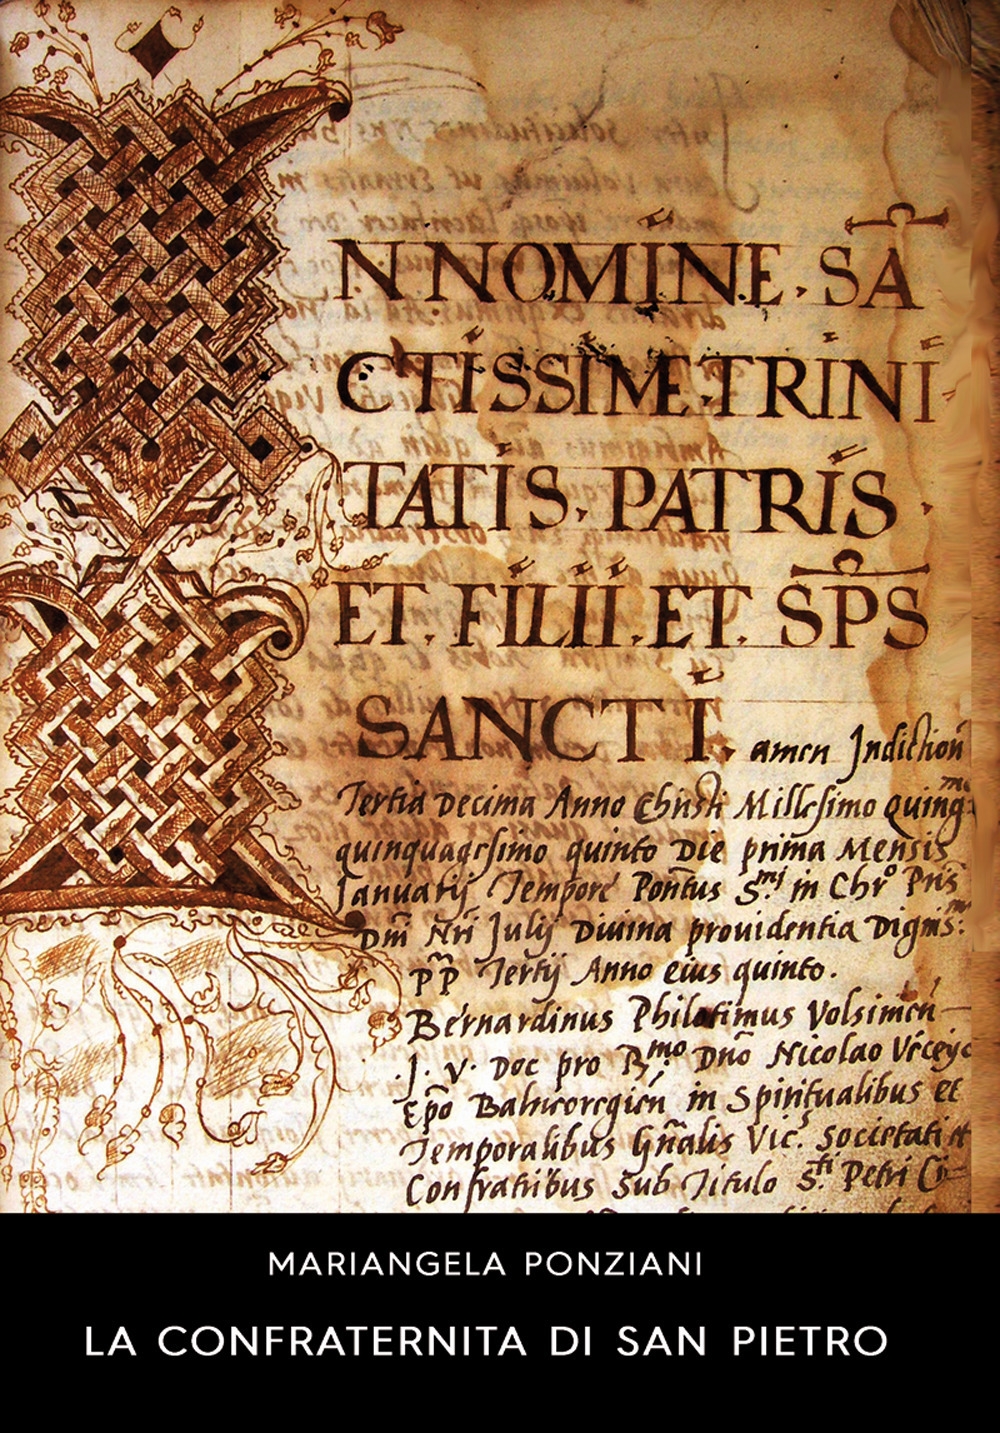 N NOMINE. SA
CTISSIME. TRINI
TATIS. PATRIS.
ET. FILII. ET. SPS
SANCTI. amen Indiction
Tertia Decima Anno Christi Millesimo quing
quinquagesimo quinto Die prima Mensis
Januarij Tempore Pontus S.mi in Chro Pris
Dni Nri Julij Diuina prouidentia
pp Tertij Anno eius quinto.
Bernardinus Philotimus Volsimen
J. v. Doc pro R.mo Dno Nicolao
Epo Balneoregien in Spiritualibus et
Temporalibus Gnalis Vic.s Societati
Confratribus Sub Titulo S.ti Petri
MARIANGELA PONZIANI
LA CONFRATERNITA DI SAN PIETRO